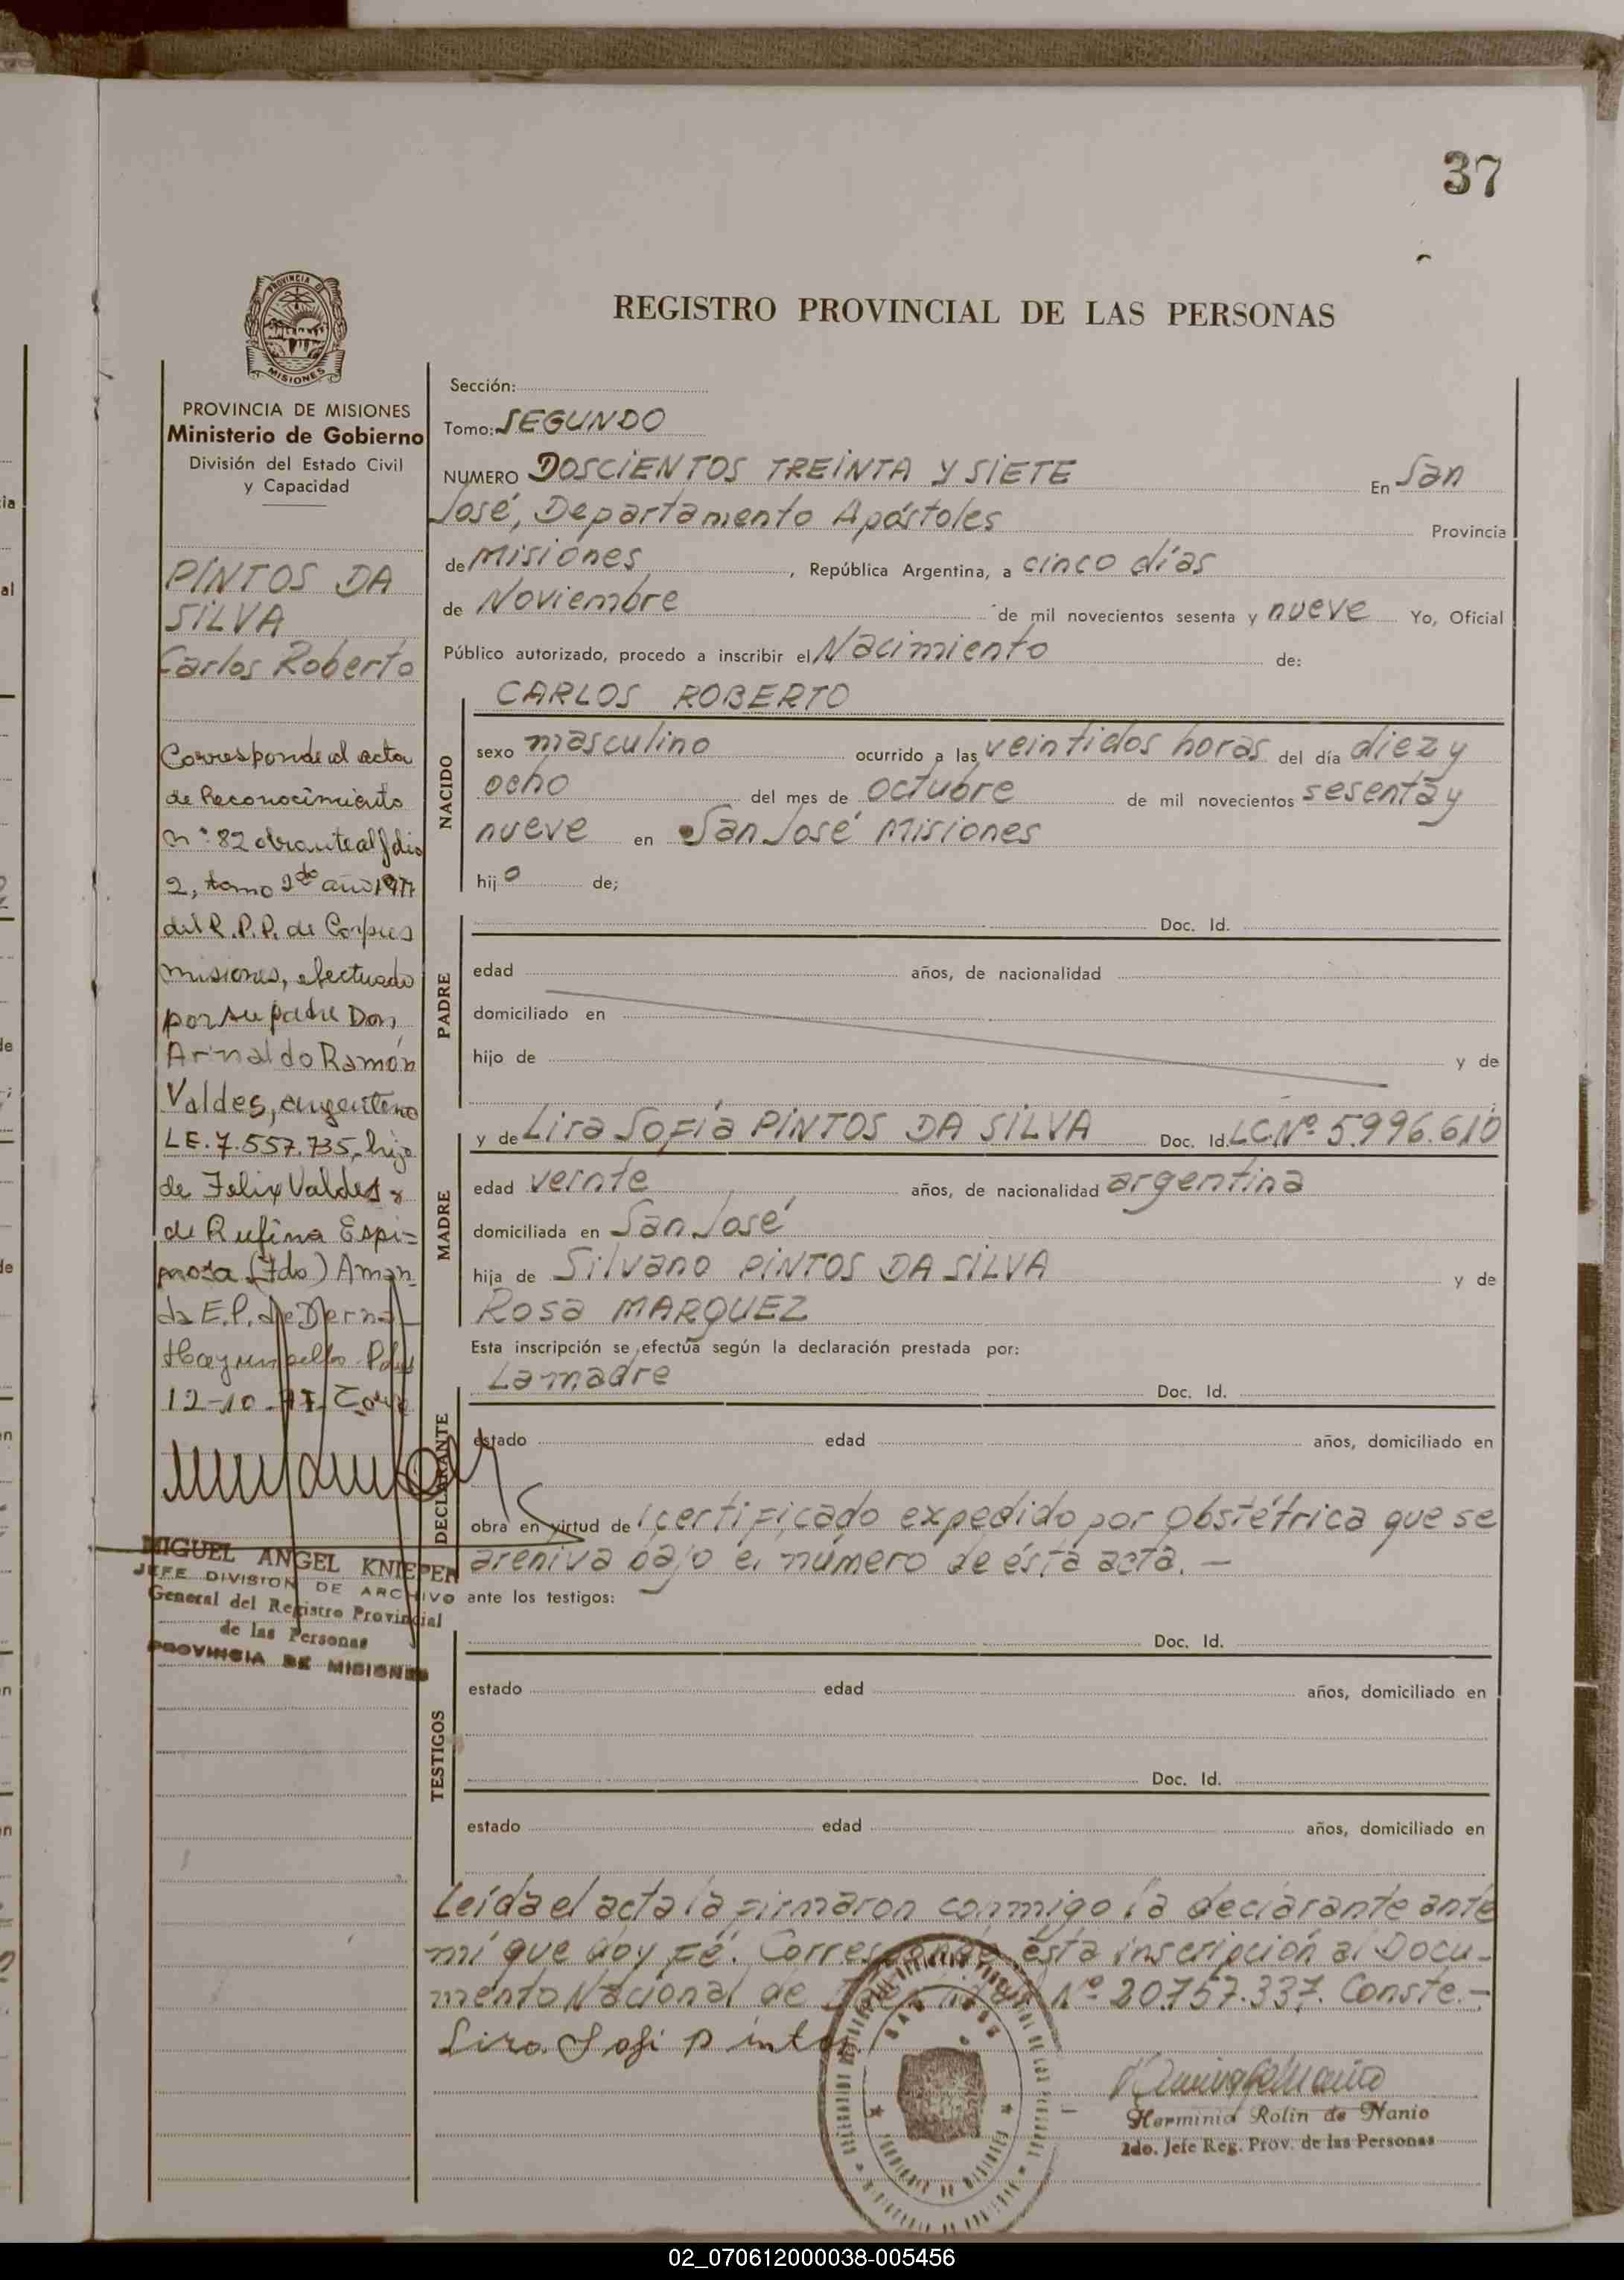 37
PROVINCIA DE
MISIONES
REGISTRO PROVINCIAL DE LAS PERSONAS
PROVINCIA DE MISIONES
Ministerio de Gobierno
División del Estado Civil
y Capacidad
PINTOS DA
SILVA
Carlos Roberto
Corresponde al acta
de Reconocimiento
n°: 82 obrante al folio
2, tomo 2do año 1977
del R.P.P. de Corpus
misiones, efectuado
por su padre Don,
Arnaldo Ramón
Valdes, argentino
LE. 7.557.735, hijo
de Felix Valdes y
de Rufina Espi=
noza (Fdo) Aman
da E.P. de Derna
Hay un sello
12-10-
MIGUEL ANGEL KNIEPER
JEFE DIVISION DE ARCHIVO
General del Registro Provincial
de las Personas
PROVINCIA DE MISIONES
Sección:
Tomo: SEGUNDO
NUMERO DOSCIENTOS TREINTA Y SIETE En San
José, Departamento Apóstoles Provincia
de Misiones, República Argentina, a cinco días
de Noviembre de mil novecientos sesenta y nueve Yo, Oficial
Público autorizado, procedo a inscribir el Nacimiento de:
CARLOS ROBERTO
NACIDO
sexo masculino ocurrido a las veintidos horas del día diez y
ocho del mes de octubre de mil novecientos sesenta y
nueve en San José Misiones
hijo de;
PADRE
Doc. Id.
edad años, de nacionalidad
domiciliado en
hijo de y de
MADRE
y de Lira Sofía PINTOS DA SILVA Doc. Id. LC Nº 5.996.610
edad veinte años, de nacionalidad argentina
domiciliada en San José
hija de Silvano PINTOS DA SILVA y de
Rosa MARQUEZ
Esta inscripción se efectúa según la declaración prestada por:
DECLARANTE
La madre Doc. Id.
estado edad años, domiciliado en
obra en virtud de certificado expedido por obstétrica que se
archiva bajo el número de ésta acta. —
ante los testigos:
TESTIGOS
Doc. Id.
estado edad años, domiciliado en
Doc. Id.
estado edad años, domiciliado en
Leída el acta la firmaron conmigo la declarante ante
mí que doy fé. Corresponde ésta inscripción al Docu-
mento Nacional de Identidad Nº 20.757.337. Conste.-
Lira Sofi Pintos
SAN JOSE
Herminia Rolin de Nanio
2do. Jefe Reg. Prov. de las Personas
02_070612000038-005456